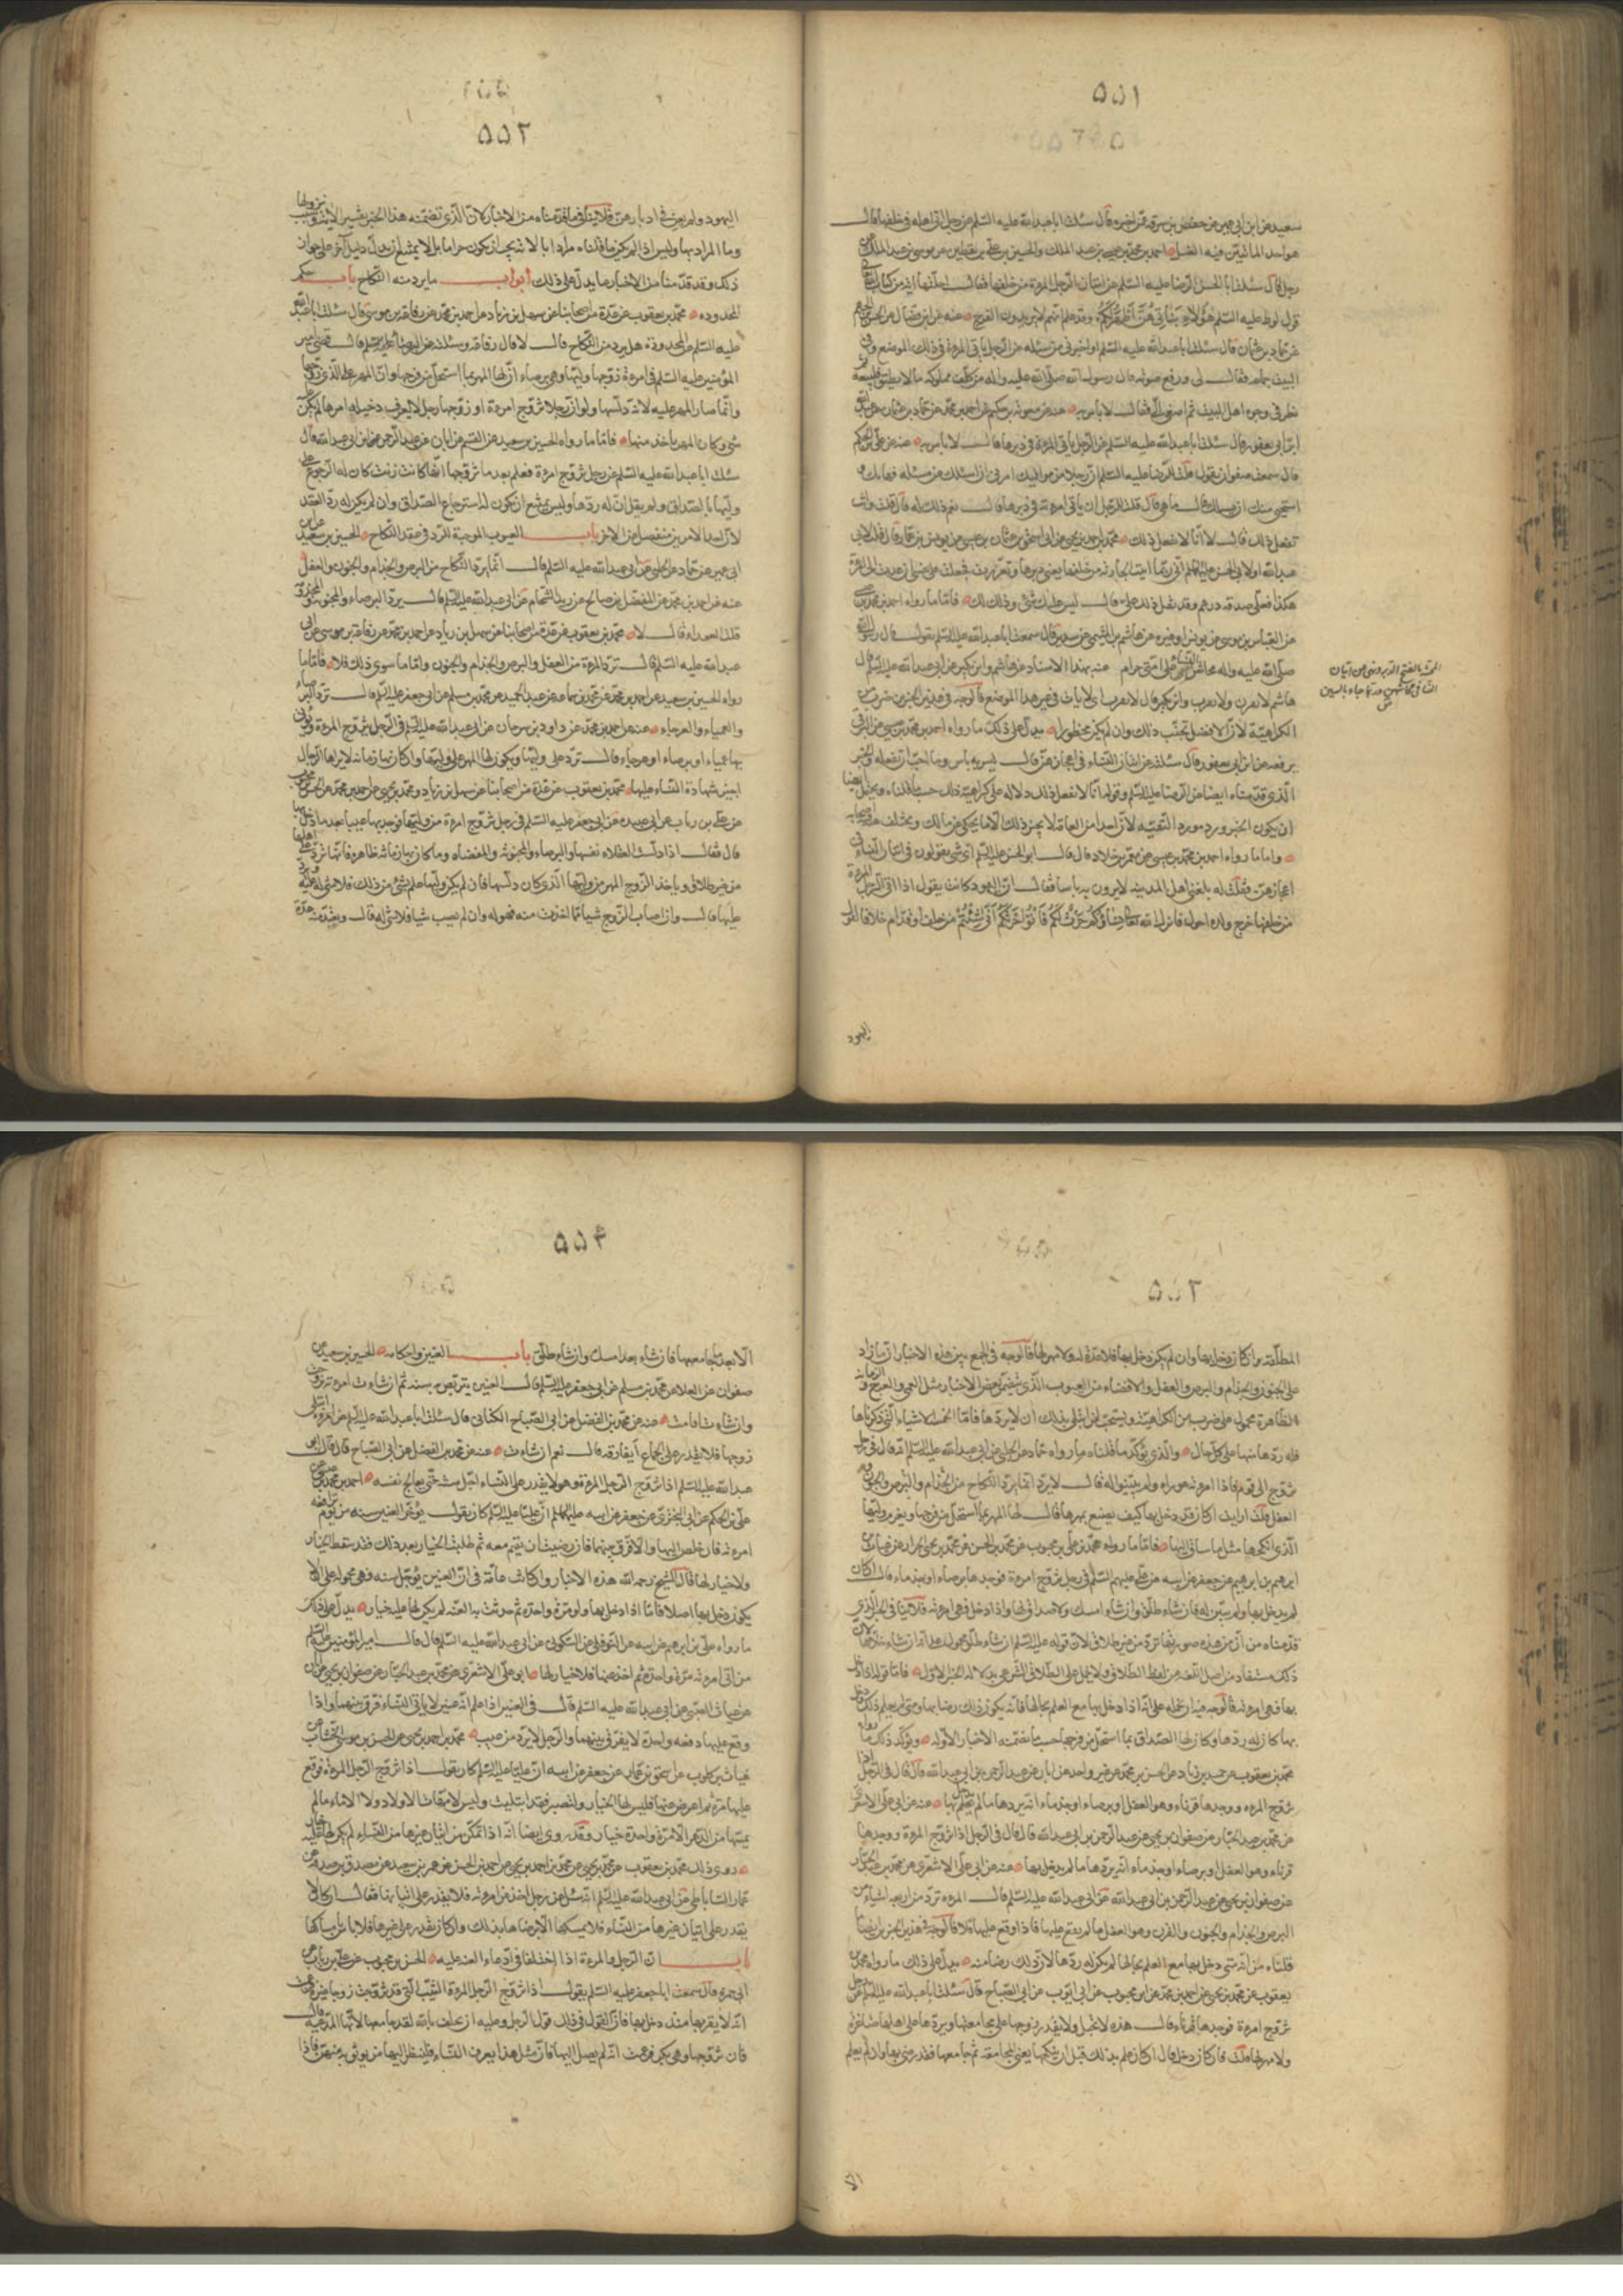 ٥٥١
سعيد عن ابن ابي عمير عن حفص بن سوقه عمن اخبره قال سئلت ابا عبد الله عليه السلم عن رجل اتى اهله من خلفها قال
هو احد المأتيين فيه الغسل احمد بن محمد بن عيسى عن علي بن يقطين عن موسى بن عبد الملك عن
رجل قال سئلت ابا الحسن الرضا عليه السلم عن اتيان الرجل المرءة من خلفها فقال احلتها اية من كتاب الله
قول لوط عليه السلم هؤلاء بناتي هن اطهر لكم وقد علم انهم لا يريدون الفرج عنه عن ابن فضال عن الحسن بن الجهم
عن حماد بن عثمان قال سئلت ابا عبد الله عليه السلم او اخبرني من سئله عن الرجل ياتي المرءة في ذلك الموضع وفي
البيت جماعة فقال لي ورفع صوته قال رسول الله صلى الله عليه واله من كلف مملوكه ما لا يطيق فليبعه
نظر في وجوه اهل البيت ثم اصغى الي فقال لا باس به
ابن ابي يعفور قال سئلت ابا عبد الله عليه السلم عن الرجل ياتي المرءة في دبرها قال لا باس به عنه عن علي بن الحكم
قال سمعت صفوان يقول قلت للرضا عليه السلم ان رجلا من مواليك امرني ان اسئلك عن مسئله فهابك و
استحيى منك ان يسئلك قال ما هي قال قلت للرجل ان ياتي امرءته في دبرها قال نعم ذلك له قال قلت وانت
تفعل ذلك قال لا انا لا نفعل ذلك
هكذا فعلي صدقه درهم وقد ثقل ذلك علي قال ليس عليك شئ وذلك لك فاما ما رواه احمد بن محمد بن عيسى
عن العباس بن موسى عن يونس او غيره عن هاشم بن المثنى عن سدير قال سمعت ابا عبد الله عليه السلم يقول قال رسول الله
صلى الله عليه واله محاش النساء على امتي حرام عنه بهذا الاسناد عن هاشم وابن بكير عن ابي عبد الله عليه السلم قال
هاشم لا تفري ولا تفرث وابن بكير قال لا تفرث اي لا يات في غير هذا الموضع فالوجه في هذين الخبرين ضرب من
الكراهية لان الافضل تجنب ذلك وان لم يكن محظورا يدل على ذلك ما رواه احمد بن محمد بن عيسى عن البرقي
يرفعه عن ابن ابي يعفور قال سئلته عن اتيان النساء في اعجازهن قال ليس به باس وما احب ان تفعله والخبر
الذي قدمناه ايضا عن الرضا عليه السلم وقوله انا لا نفعل ذلك دلاله على كراهية ذلك حسب ما قلناه ويحتمل ايضا
ان يكون الخبر ورد مورد التقية لان احدا من العامة لا يجيز ذلك الا ما يحكى عن مالك ويختلف عنه اصحابه
واما ما رواه احمد بن محمد بن عيسى عن معمر بن خلاد قال قال ابو الحسن عليه السلم اي شئ يقولون في اتيان النساء في
اعجازهن فقلت له بلغني ان اهل المدينه لا يرون به باسا فقال ان اليهود كانت تقول اذا اتى الرجل المرءة
من خلفها خرج ولده احول فانزل الله تعالى نساؤكم حرث لكم فاتوا حرثكم انى شئتم من خلف او قدام خلافا لقول
اليهود
٥٥٢
اليهود ولم يعن في ادبارهن فلا ينافي ما قدمناه من الاخبار لان الذي تضمنه هذا الخبر تفسير الاية وسبب نزولها
وما المراد بها وليس اذا لم يكن ما قلناه مرادا بالاية يجب ان يكون حراما بل لا يمتنع ان يدل دليل اخر على جواز
ذلك وقد قدمنا من الاخبار ما يدل على ذلك ابواب ما يرد منه النكاح باب حكم
المحدوده محمد بن يعقوب عن عدة من اصحابنا عن سهل بن زياد عن احمد بن محمد عن رفاعة بن موسى قال سئلت ابا عبد الله
عليه السلم عن المحدودة هل يرد من النكاح قال لا قال رفاعة وسئلته عن البرصاء فقال قضى امير
المؤمنين عليه السلم في امرءة زوجها وليها وهي برصاء ان لها المهر بما استحل من فرجها وان المهر على الذي زوجها
وانما صار المهر عليه لانه دلسها ولو ان رجلا تزوج امرءة او زوجها رجل لا يعرف دخيلة امرها لم يكن عليه
شئ وكان المهر ياخذ منها فاما ما رواه الحسين بن سعيد عن القسم عن ابان عن عبد الرحمن بن ابي عبد الله قال
سئلت ابا عبد الله عليه السلم عن رجل تزوج امرءة فعلم بعد ما تزوجها انها كانت زنت كان له الرجوع على
وليها بالصداق ولم يقل ان له ردها وليس يمتنع ان يكون له استرجاع الصداق وان لم يكن له رد العقد
لان احد الامرين منفصل من الاخر باب العيوب الموجبة للرد في عقد النكاح الحسين بن سعيد عن ابن
ابي عمير عن حماد عن الحلبي عن ابي عبد الله عليه السلم قال انما يرد النكاح من البرص والجذام والجنون والعفل
عنه عن احمد بن محمد عن المفضل بن صالح عن زيد الشحام عن ابي عبد الله عليه السلم قال يرد البرصاء والمجنونة والمجذومة
قلت العوراء قال لا محمد بن يعقوب عن عدة من اصحابنا عن سهل بن زياد عن احمد بن محمد عن رفاعة بن موسى عن ابي
عبد الله عليه السلم قال ترد المرءة من العفل والبرص والجذام والجنون واما ما سوى ذلك فلا فاما ما
رواه الحسين بن سعيد عن احمد بن محمد عن محمد بن سماعة عن عبد الحميد عن محمد بن مسلم عن ابي جعفر عليه السلم قال ترد البرصاء
والعمياء والعرجاء عنه عن احمد بن محمد عن داود بن سرحان عن ابي عبد الله عليه السلم في الرجل يتزوج المرءة فيؤتى
بها عمياء او برصاء او عرجاء قال ترد على وليها ويكون لها المهر على وليها وان كان بها زمانه لا يراها الرجال
اجيز شهادة النساء عليها محمد بن يعقوب عن عدة من اصحابنا عن سهل بن زياد ومحمد بن يحيى عن احمد بن محمد عن الحسن بن محبوب
عن علي بن رئاب عن ابي عبيده عن ابي جعفر عليه السلم في رجل تزوج امرءة من وليها فوجد بها عيبا بعد ما دخل بها
قال فقال اذا دلست العفلاء نفسها والبرصاء والمجنونة والمفضاه وما كان بها زمانة ظاهره فانها ترد على اهلها
من غير طلاق وياخذ الزوج المهر من وليها الذي كان دلسها فان لم يكن وليها علم بشئ من ذلك فلا شئ له عليه وترد
عليها قال وان اصاب الزوج شيا مما اخذت منه فهو له وان لم يصب شيا فلا شئ له قال وتعتد منه عدة
المرد بالفتح الدبر ونهى عن اتيان
النساء في محاشهن وربما جاء بالسين
ص
٥٥٣
المطلقة ان كان دخل بها وان لم يكن دخل بها فلا عدة له ولا مهر لها فالوجه في الجمع بين هذه الاخبار ان ما زاد
على الجنون والجذام والبرص والعفل والافضاء من العيوب الذي تضمن بعض الاخبار مثل العمى والعرج والزمانه
الظاهرة محمول على ضرب من الكراهية ويستحب لمن ابتلي بذلك ان لا يردها فاما الخمسة الاشياء التي ذكرناها
فله ردها منها على كل حال والذي يؤكد ما قلناه ما رواه حماد عن الحلبي عن ابي عبد الله عليه السلم انه قال في رجل
تزوج الى قوم فاذا امرءته عوراء ولم يبينوا له قال لا يرد انما يرد النكاح من الجذام والبرص والجنون و
العفل قلت ارايت ان كان قد دخل بها كيف يصنع بمهرها قال لها المهر بما استحل من فرجها ويغرم وليها
الذي انكحها مثل ما ساق اليها فاما ما رواه محمد بن علي بن محبوب عن محمد بن الحسن عن محمد بن يحيى الخزاز عن غياث بن
ابرهيم عن جعفر عن ابيه عن علي عليهم السلم في رجل تزوج امرءة فوجدها برصاء او جذماء قال ان كان
لم يدخل بها ولم يتبين له فان شاء طلق وان شاء امسك ولا صداق لها واذا دخل فهي امرءته فلا ينافي الخبر الذي
قدمناه من ان من هذه صورتها ترد من غير طلاق لان قوله عليه السلم ان شاء طلق محمول على انه ان شاء خلاها لان
ذلك مستفاد من اصل اللغة من لفظ الطلاق ولا يحمل على الطلاق الشرعي بدلالة الخبر الاول فاما قوله اذا دخل
بها فهي امرءته فالوجه فيه ان نحمله على انه اذا دخل بها مع العلم بحالها فانه يكون ذلك رضا بها ومتى لم يعلم ذلك ودخل
بها كان له ردها وكان لها الصداق بما استحل من فرجها حسب ما تضمنته الاخبار الاوله ويؤكد ذلك ما رواه
محمد بن يعقوب عن حميد بن زياد عن الحسن بن محمد عن غير واحد عن ابان عن عبد الرحمن بن ابي عبد الله قال قال في الرجل اذا
تزوج المرءه ووجد بها قرناء وهو العفل او برصاء او جذماء انه يردها ما لم يدخل بها عنه عن ابي علي الاشعري
عن محمد بن عبد الجبار عن صفوان بن يحيى عن عبد الرحمن بن ابي عبد الله قال قال في الرجل اذا تزوج المرءة ووجد بها
قرناء وهو العفل او برصاء او جذماء انه يردها ما لم يدخل بها عنه عن ابي علي الاشعري عن محمد بن عبد الجبار
عن صفوان بن يحيى عن عبد الرحمن بن ابي عبد الله عن ابي عبد الله عليه السلم قال المرءه ترد من اربعه اشياء من
البرص والجذام والجنون والقرن وهو العفل ما لم يقع عليها فاذا وقع عليها فلا فالوجه في هذين الخبرين ايضا
قلناه من انه متى دخل بها مع العلم بحالها لم يكن له ردها لان ذلك رضا منه يدل على ذلك ما رواه محمد بن
يعقوب عن محمد بن يحيى عن احمد بن محمد عن ابن محبوب عن ابي ايوب عن ابي الصباح قال سئلت ابا عبد الله عليه السلم عن رجل
تزوج امرءة فوجد بها قرناء قال هذه لا تحبل ولا يقدر زوجها على مجامعتها ويردها على اهلها صاغرة
ولا مهر لها قلت فان كان دخل قال ان كان علم بذلك قبل ان ينكحها يعني المجامعة ثم جامعها فقد رضي بها وان لم يعلم
الا
٥٥٤
الا بعد ما جامعها فان شاء بعد امسك وان شاء طلق باب العنين واحكامه الحسين بن سعيد عن
صفوان عن العلاء عن محمد بن مسلم عن ابي جعفر عليه السلم قال العنين يتربص به سنة ثم ان شاءت امرءته تزوجت
وان شاءت اقامت عنه عن محمد بن الفضل عن ابي الصباح الكناني قال سئلت ابا عبد الله عليه السلم عن امرءة ابتلى
زوجها فلا يقدر على الجماع أيفارقه قال نعم ان شاءت عنه عن محمد بن الفضل عن ابي الصباح قال قال ابو
عبد الله عليه السلم اذا تزوج الرجل المرءة وهو لا يقدر على النساء اجل سنة حتى يعالج نفسه احمد بن محمد عن
علي بن الحكم عن ابي البختري عن جعفر عن ابيه عليهما السلم ان عليا عليه السلم كان يقول يؤخر العنين سنه من يوم ترافعه
امرءته فان خلص اليها والا فرق بينهما فان رضيت ان يقيم معه ثم طلبت الخيار بعد ذلك فقد سقط الخيار
ولا خيار لها قال الشيخ رحمه الله هذه الاخبار وان كانت عامة في ان العنين يؤجل سنه فهي محمولة على الا
يكون دخل بها اصلا فاما اذا دخل بها ولو مرة واحدة ثم حدثت به العنه لم يكن لها عليه خيار يدل على ذلك
ما رواه علي بن ابرهيم عن ابيه عن النوفلي عن السكوني عن ابي عبد الله عليه السلم قال قال امير المؤمنين عليه السلم
من اتى امرءته مرة واحدة ثم اخذ عنها فلا خيار لها ابو علي الاشعري عن محمد بن عبد الجبار عن صفوان بن يحيى عن ابان
عن عباد الضبي عن ابي عبد الله عليه السلم قال في العنين اذا علم انه عنين لا ياتي النساء فرق بينهما واذا
وقع عليها دفعه واحدة لا يفرق بينهما والرجل لا يرد من عيب محمد بن احمد بن يحيى عن الحسن بن موسى الخشاب عن
غياث بن كلوب عن اسحق بن عمار عن جعفر عن ابيه ان عليا عليه السلم كان يقول اذا تزوج الرجل المرءة فوقع
عليها مرة ثم اعرض عنها فليس لها الخيار ولتصبر فقد ابتليت وليس لامهات الاولاد ولا الاماء ما لم
يمسها من الدهر الا مرة واحدة خيار وقد روي ايضا انه اذا تمكن من اتيان غيرها من النساء لم يكن لها عليه خيار
روى ذلك محمد بن يعقوب عن محمد بن يحيى عن محمد بن احمد بن يحيى عن احمد بن الحسن عن عمرو بن سعيد عن مصدق بن صدقه عن
عمار الساباطي عن ابي عبد الله عليه السلم انه سئل عن رجل اخذ عن امرءته فلا يقدر على اتيانها فقال ان كان لا
يقدر على اتيان غيرها من النساء فلا يمسكها الا برضاها بذلك وان كان يقدر على غيرها فلا باس بامساكها
باب ان الرجل والمرءة اذا اختلفا في ادعاء العنه عليه الحسن بن محبوب عن علي بن رئاب عن
ابي حمزه قال سمعت ابا جعفر عليه السلم يقول اذا تزوج الرجل المرءة الثيب التي قد تزوجت زوجا غيره فزعمت
انه لا يقربها منذ دخل بها فان القول في ذلك قول الرجل وعليه ان يحلف بالله لقد جامعها لانها المدعيه قال
فان تزوجها وهي بكر فزعمت انه لم يصل اليها فان مثل هذا يعرف النساء فلينظر اليها من يوثق به منهن فاذا